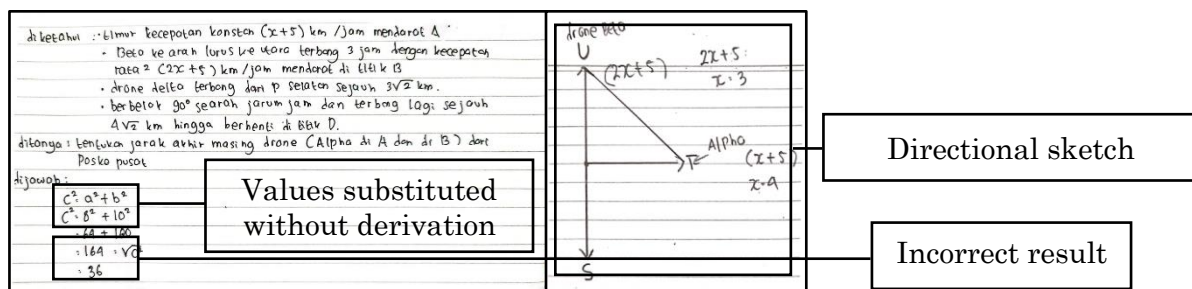 diketahui : timur kecepatan konstan (x+5) km/jam mendarat A
· Beto ke arah lurus ke utara terbang 3 jam dengan kecepatan
rata² (2x+5) km/jam mendarat di titik B
· drone delta terbang dari p selatan sejauh 3√2 km.
· berbelok 90° searah jarum jam dan terbang lagi sejauh
4√2 km hingga berhenti di titik D.
ditanya : tentukan jarak akhir masing drone (Alpha di A dan di B) dari
Posko pusat
dijawab :
c² = a² + b²
c² = 8² + 10²
= 64 + 100
= 164 = √c
= 36
Values substituted
without derivation
drone Beto
U
(2x+5)
2x+5 =
x = 3
Alpha
(x+5)
T
x = 4
S
Directional sketch
Incorrect result